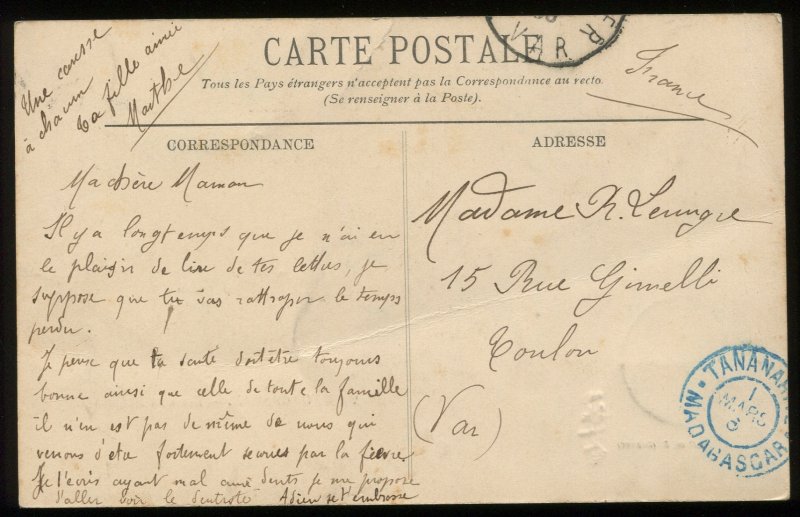 CARTE POSTALE
Tous les Pays étrangers n'acceptent pas la Correspondance au recto.
(Se renseigner à la Poste).
CORRESPONDANCE
Ma chère Maman
Il y a longtemps que je n'ai eu
le plaisir de lire de tes lettres, je
suppose que tu vas rattraper le temps
perdu.
Je pense que ta santé doit être toujours
bonne ainsi que celle de toute la famille
il n'en est pas de même de nous qui
venons d'être fortement secoués par la fièvre.
Je t'écris ayant mal aux dents je me propose
d'aller voir le dentiste Adieu je t'embrasse
Une caresse
à chacun
ta fille aimée
Marthe
ADRESSE
France
Madame R.
15 Rue Gimelli
Toulon
(Var)
VAR
MADAGASCAR
1
MARS